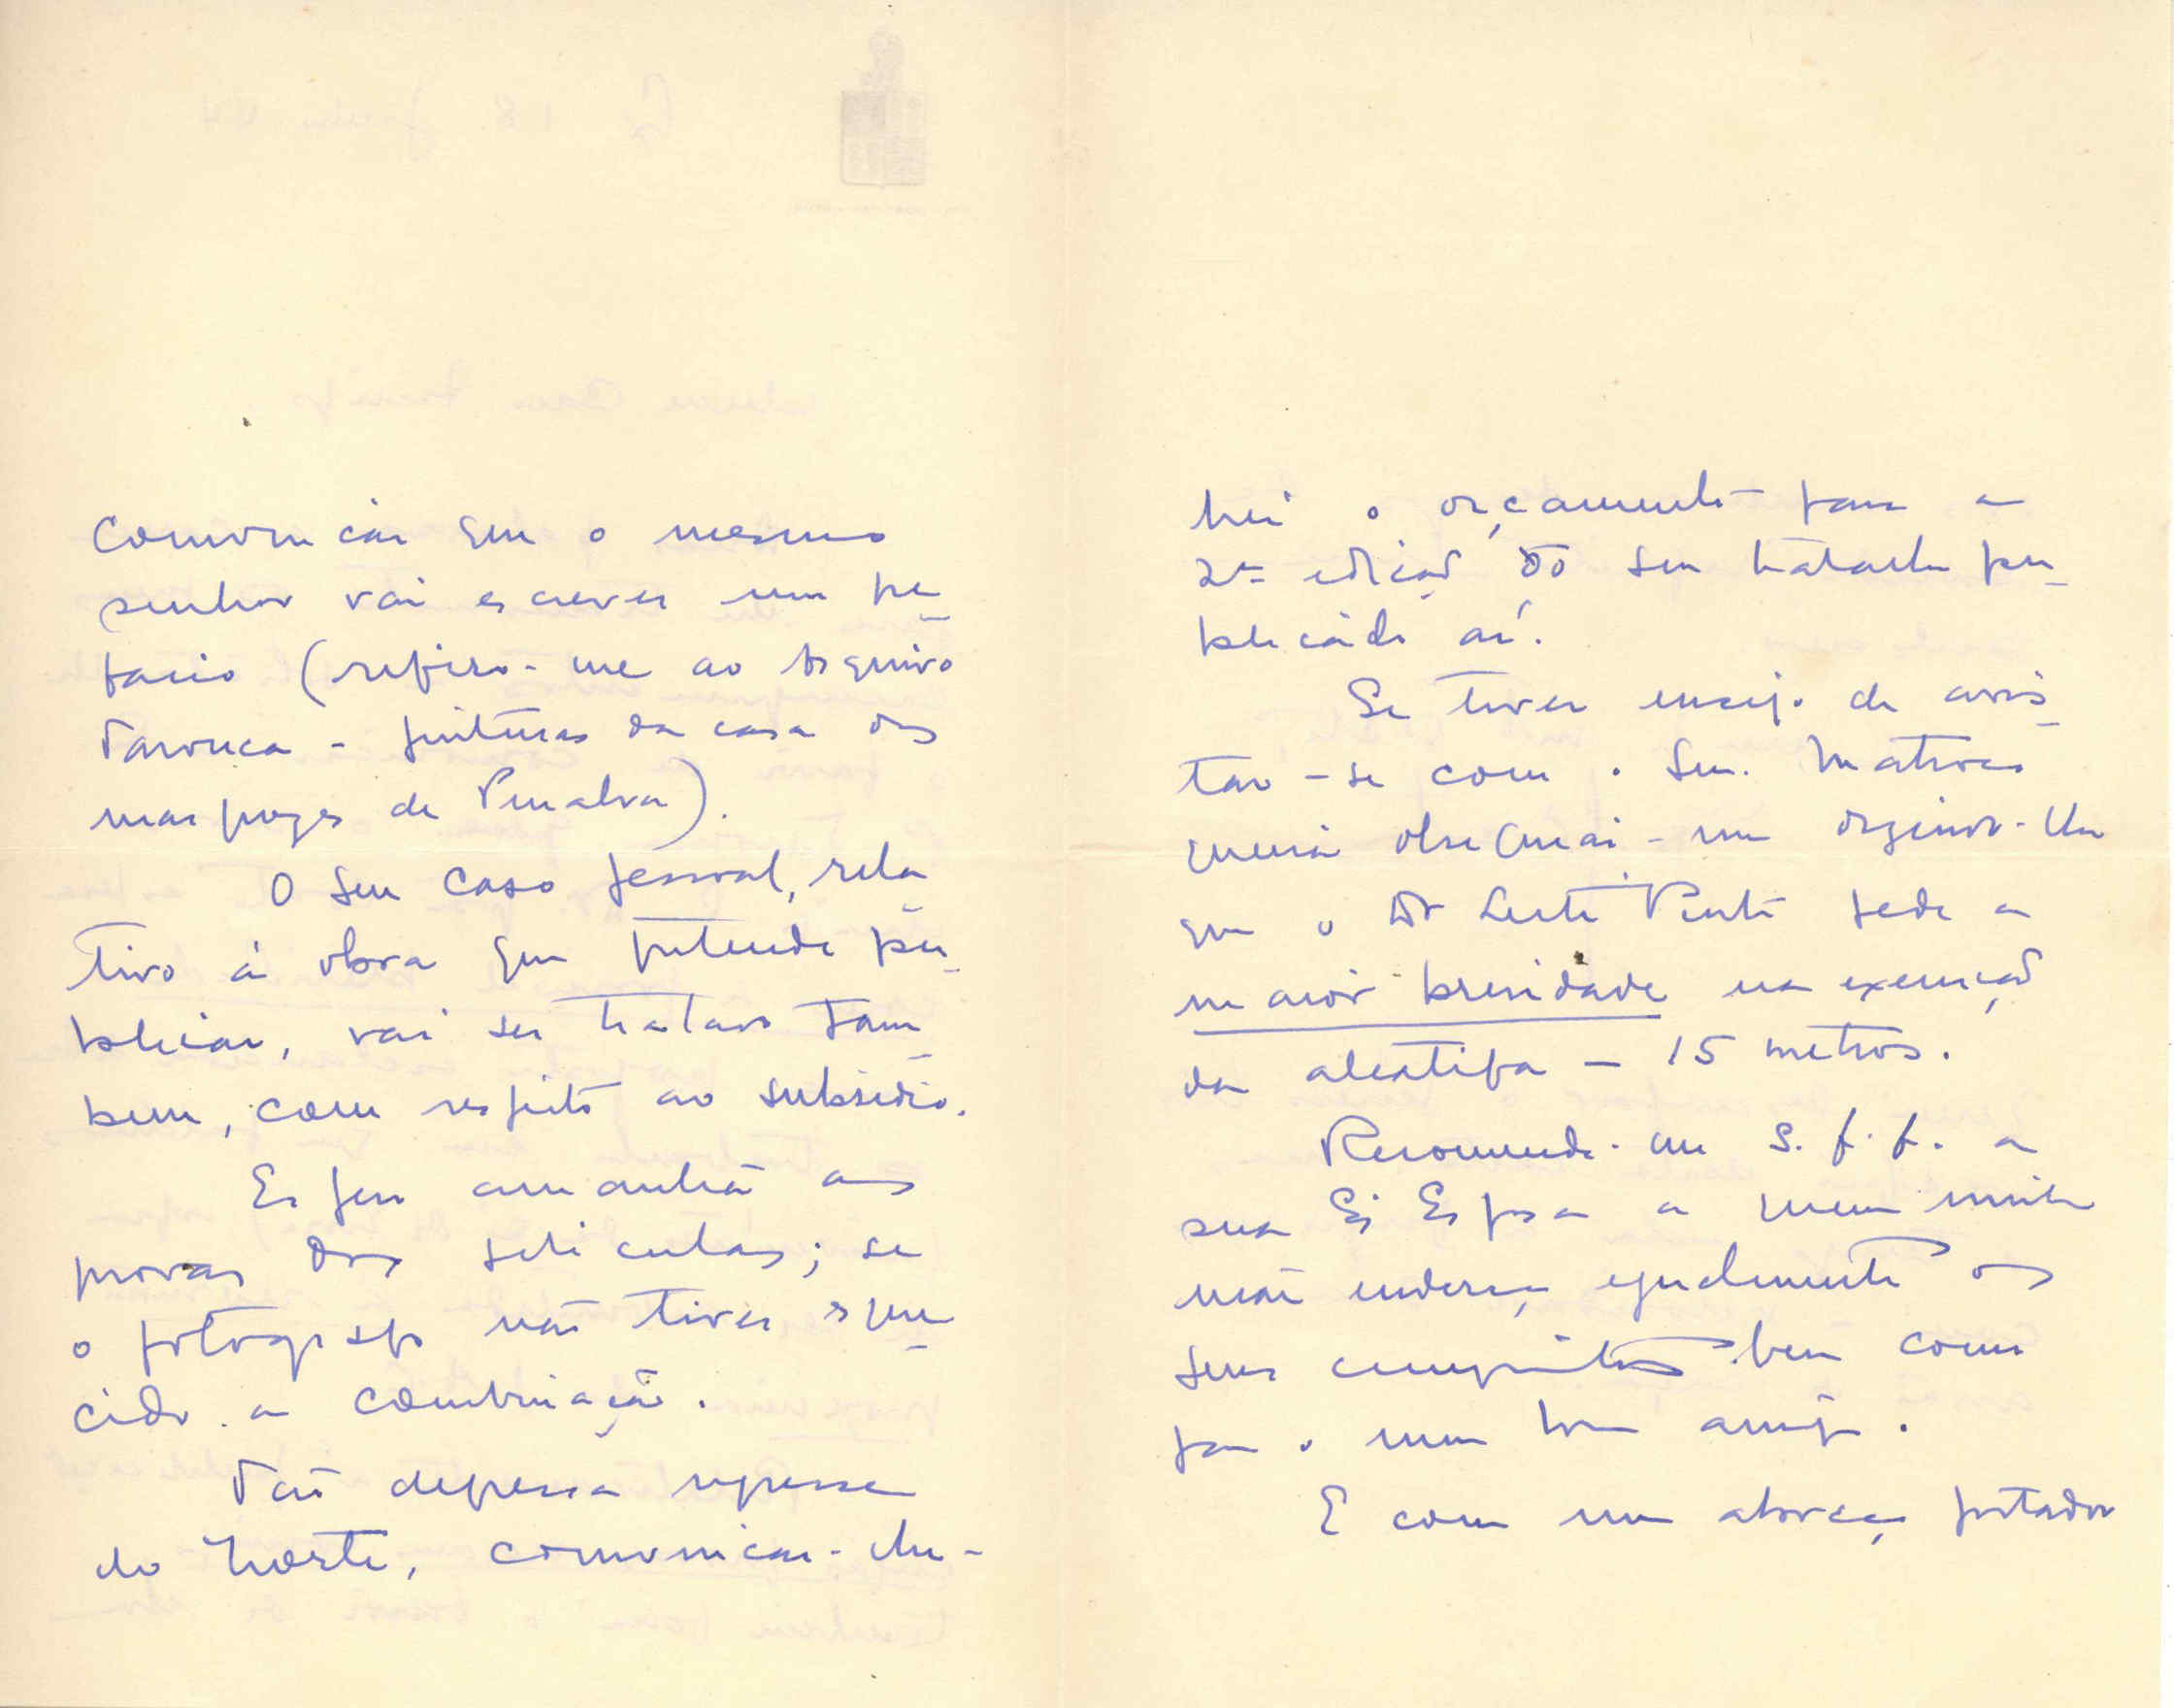 comunicar que o mesmo
senhor vai escrever um pre_
facio (refiro-me ao Arquivo
Tarouca - pinturas da casa dos
marquezes de Penalva).
O seu caso pessoal, rela_
tivo á obra que pretende pu_
blicar, vai ser tratado tam_
bem, com respeito ao subsidio.
Espero amanhã as
provas das peliculas; se
o fotografo não tiver esque_
cido a combinação.
Tão depressa regresse
do Norte, comunicar-lhe-
hei o orçamento para a
2ª edição do seu trabalho pu_
blicado aí.
Se tiver ensejo de avis_
tar-se com o Snr. Matroco
queira obsequiar-me dizendo-lhe
que o Dr Leite Pinto pede a
maior brevidade na execução
da alcatifa - 15 metros.
Recomende-me s. f. f. a
sua Ex Esposa a quem minha
mãe endereça egualmente os
seus cumprimentos bem como
para o meu bom amigo.
E com um abraço